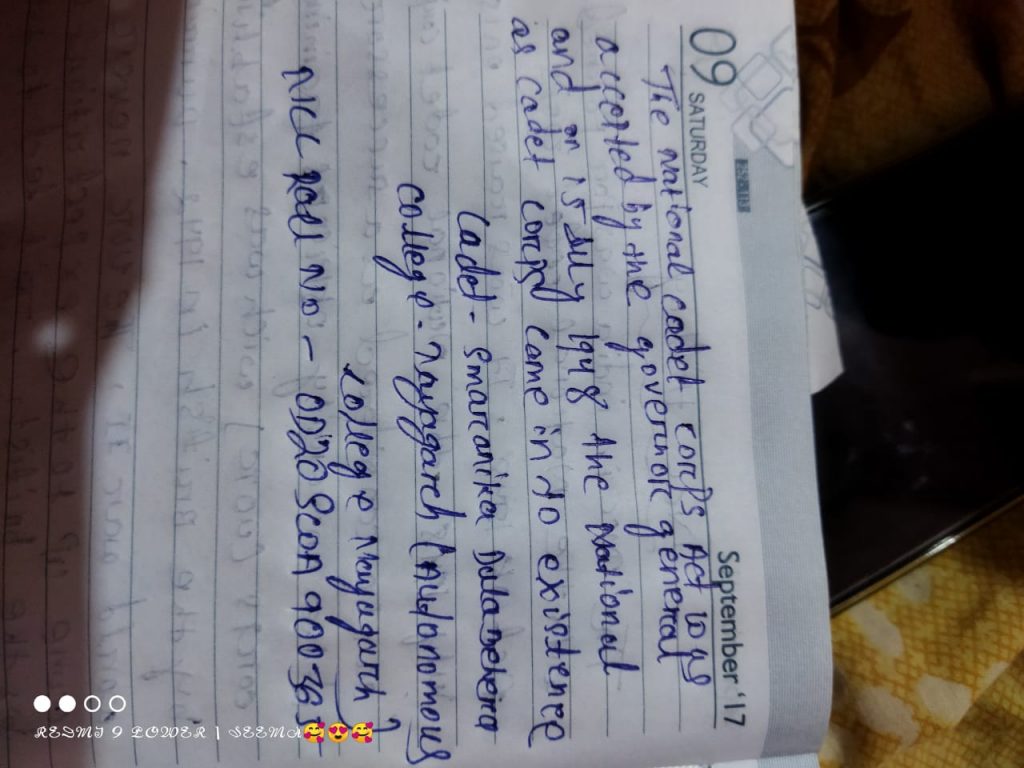 09 SATURDAY September '17
The national cadet corps Act was
accepted by the governore general
and on 15 July 1948 the National
as cadet corps came in to existence
Cadet - Smaranika Dalabehera
college - Nayagarh (Autonomous
college Nayagarh)
NCC Roll No -
REDMI 9 POWER | SEEMA🥰😍🥰